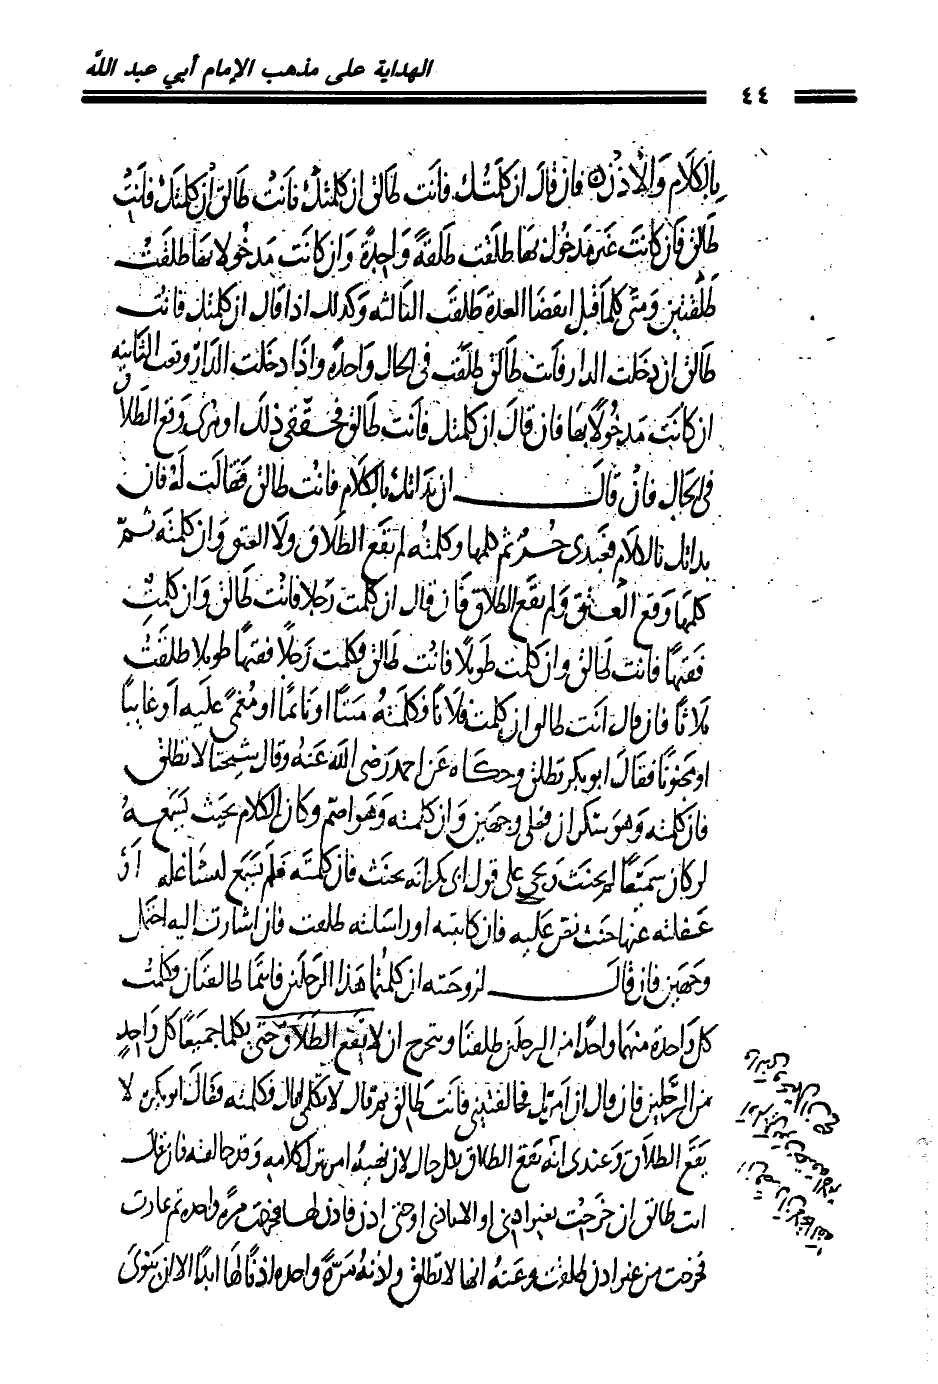 الهداية على مذهب الإمام أبي عبد الله
٤٤
بالكلام والاذن فان قال ان كلمتك فانت طالق ان كلمتك فانت طالق ان كلمتك فانت
طالق فان كانت غير مدخول بها طلقت طلقة واحدة وان كانت مدخولا بها طلقت
طلقتين ومتى كلما قبل انقضا العدة طلقت الثالثه وكذلك اذا قال ان كلمتك فانت
طالق ان دخلت الدار فانت طالق طلقت في الحال واحدة واذا دخلت الدار وقعت الثانيه
ان كانت مدخولا بها فان قال ان كلمتك فانت طالق فتحققي ذلك او مري وقع الطلاق
في الحال فان قال ان بداتك بالكلام فانت طالق فقالت له فان
بداتك بالكلام فعبدي حر ثم كلمها وكلمته لم يقع الطلاق ولا العتق وان كلمته ثم
كلمها وقع العتاق ولم يقع الطلاق فان قال ان كلمت رجلا فانت طالق وان كلمت
فقيها فانت طالق وان كلمت طويلا فانت طالق فكلمت رجلا فقيها طويلا طلقت
ثلاثا فان قال انت طالق ان كلمت فلانا فكلمته ميتا او نائما او مغمى عليه او غايبا
او مجنونا فقال ابو بكر تطلق وحكاه عن احمد رضي الله عنه وقال شيخنا لا تطلق
فان كلمته وهو سكران فعلى وجهين وان كلمته وهو اصم وكان الكلام بحيث يسمعه
لو كان سميعا لم يحنث ويجي على قول ابي بكر انه يحنث فان كلمته فلم يسمع لتشاغله او
غفلته عنها حنث نص عليه فان كاتبته او راسلته طلقت فان اشارت اليه احتمل
وجهين فان قال لزوجته ان كلمتما هذا الرجلين فانتما طالقتان فكلمت
كل واحدة منهما واحدا من الرجلين طلقتا ويتخرج ان لا يقع الطلاق حتى يكلما جميعا كل واحد
من الرجلين فان قال ان امرتك فخالفتيني فانت طالق ثم قال لا تكلمي فكلمته فقال ابو بكر لا
يقع الطلاق وعندي انه يقع الطلاق بكل حال لان نهيه امر بترك كلامه وقد خالفته فان قال
انت طالق ان خرجت بغير اذني او الا باذني او حتى اذن فاذن لها فخرجت مرة واحده ثم عادت
فخرجت من غير اذن طلقت وعنه انها لا تطلق ولاذنه مرة واحده اذنا لها ابدا الا ان ينوي